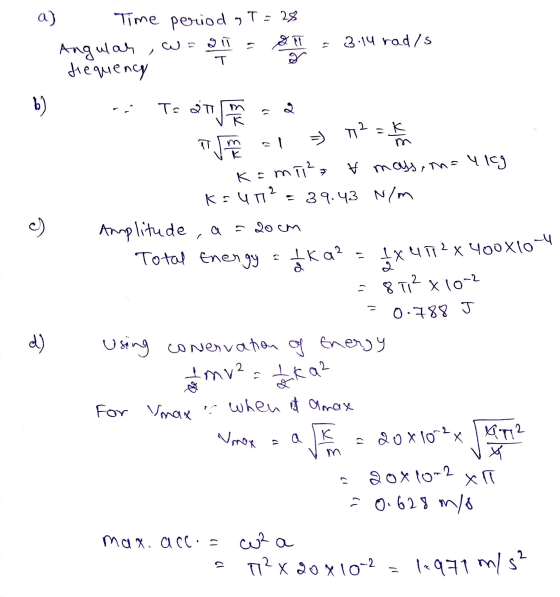 a) Time period, T = 2s
Angular, ω = 2π/T = 2π/2 = 3.14 rad/s
frequency
b) ∵ T = 2π√(m/K) = 2
π√(m/K) = 1 ⇒ π² = K/m
K = mπ², ∀ mass, m = 4 kg
K = 4π² = 39.43 N/m
c) Amplitude, a = 20 cm
Total Energy = 1/2 Ka² = 1/2 × 4π² × 400 × 10⁻⁴
= 8π² × 10⁻²
= 0.788 J
d) Using conervation of Energy
1/2 mv² = 1/2 Ka²
For Vmax ∵ when amax
Vmax = a√(K/m) = 20 × 10⁻² × √(4π²/4)
= 20 × 10⁻² × π
= 0.628 m/s
max. acc. = ω² a
= π² × 20 × 10⁻² = 1.971 m/s²